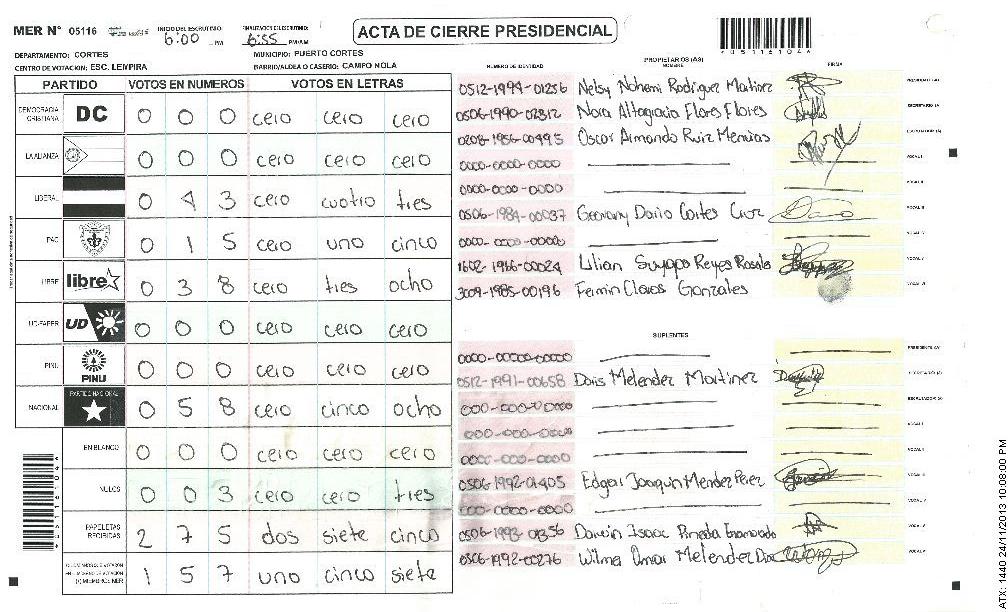 MER N° 05116 INICIO DEL ESCRUTINIO 6:00 PM FINALIZACION ESCRUTINIO: 6:55 PM/AM ACTA DE CIERRE PRESIDENCIAL
DEPARTAMENTO: CORTES MUNICIPIO: PUERTO CORTES
CENTRO DE VOTACION: ESC. LEMPIRA BARRIO/ALDEA O CASERIO: CAMPO NOLA
PARTIDO VOTOS EN NUMEROS VOTOS EN LETRAS
DEMOCRACIA CRISTIANA DC 0 0 0 cero cero cero
LA ALIANZA 0 0 0 cero cero cero
LIBERAL 0 4 3 cero cuatro tres
PAC 0 1 5 cero uno cinco
LIBRE libre 0 3 8 cero tres ocho
UD-FAPER UD 0 0 0 cero cero cero
PINU PINU 0 0 0 cero cero cero
NACIONAL PARTIDO NACIONAL 0 5 8 cero cinco ocho
EN BLANCO 0 0 0 cero cero cero
NULOS 0 0 3 cero cero tres
PAPELETAS RECIBIDAS 2 7 5 dos siete cinco
1 5 7 uno cinco siete
NUMERO DE IDENTIDAD PROPIETARIOS (AS) NOMBRE FIRMA
0512-1994-01256 Nelsy Nohemi Rodriguez Martinez
0506-1990-02312 Nora Altagracia Flores Flores
0208-1956-00495 Oscar Armando Ruiz
0000-0000-0000
0000-0000-0000
0506-1984-00037 Geovany Dario Cortes Cruz
0000-0000-0000
1602-1966-00024 Lilian Suyapa Reyes Rosales
Fermin Claros Gonzales
SUPLENTES
0000-00000-00000
0512-1991-00658 Doris Melendez Martinez
000-000-00000
000-000-0000
0000-000-0000
0506-1992-01405 Edgar Joaquin Mendez Perez
000-0000-0000
Darwin Isaac Pineda Enamorado
0506-1992-00276 Wilmer Omar Melendez
ATX: 1440 24/11/2013 10:08:00 PM